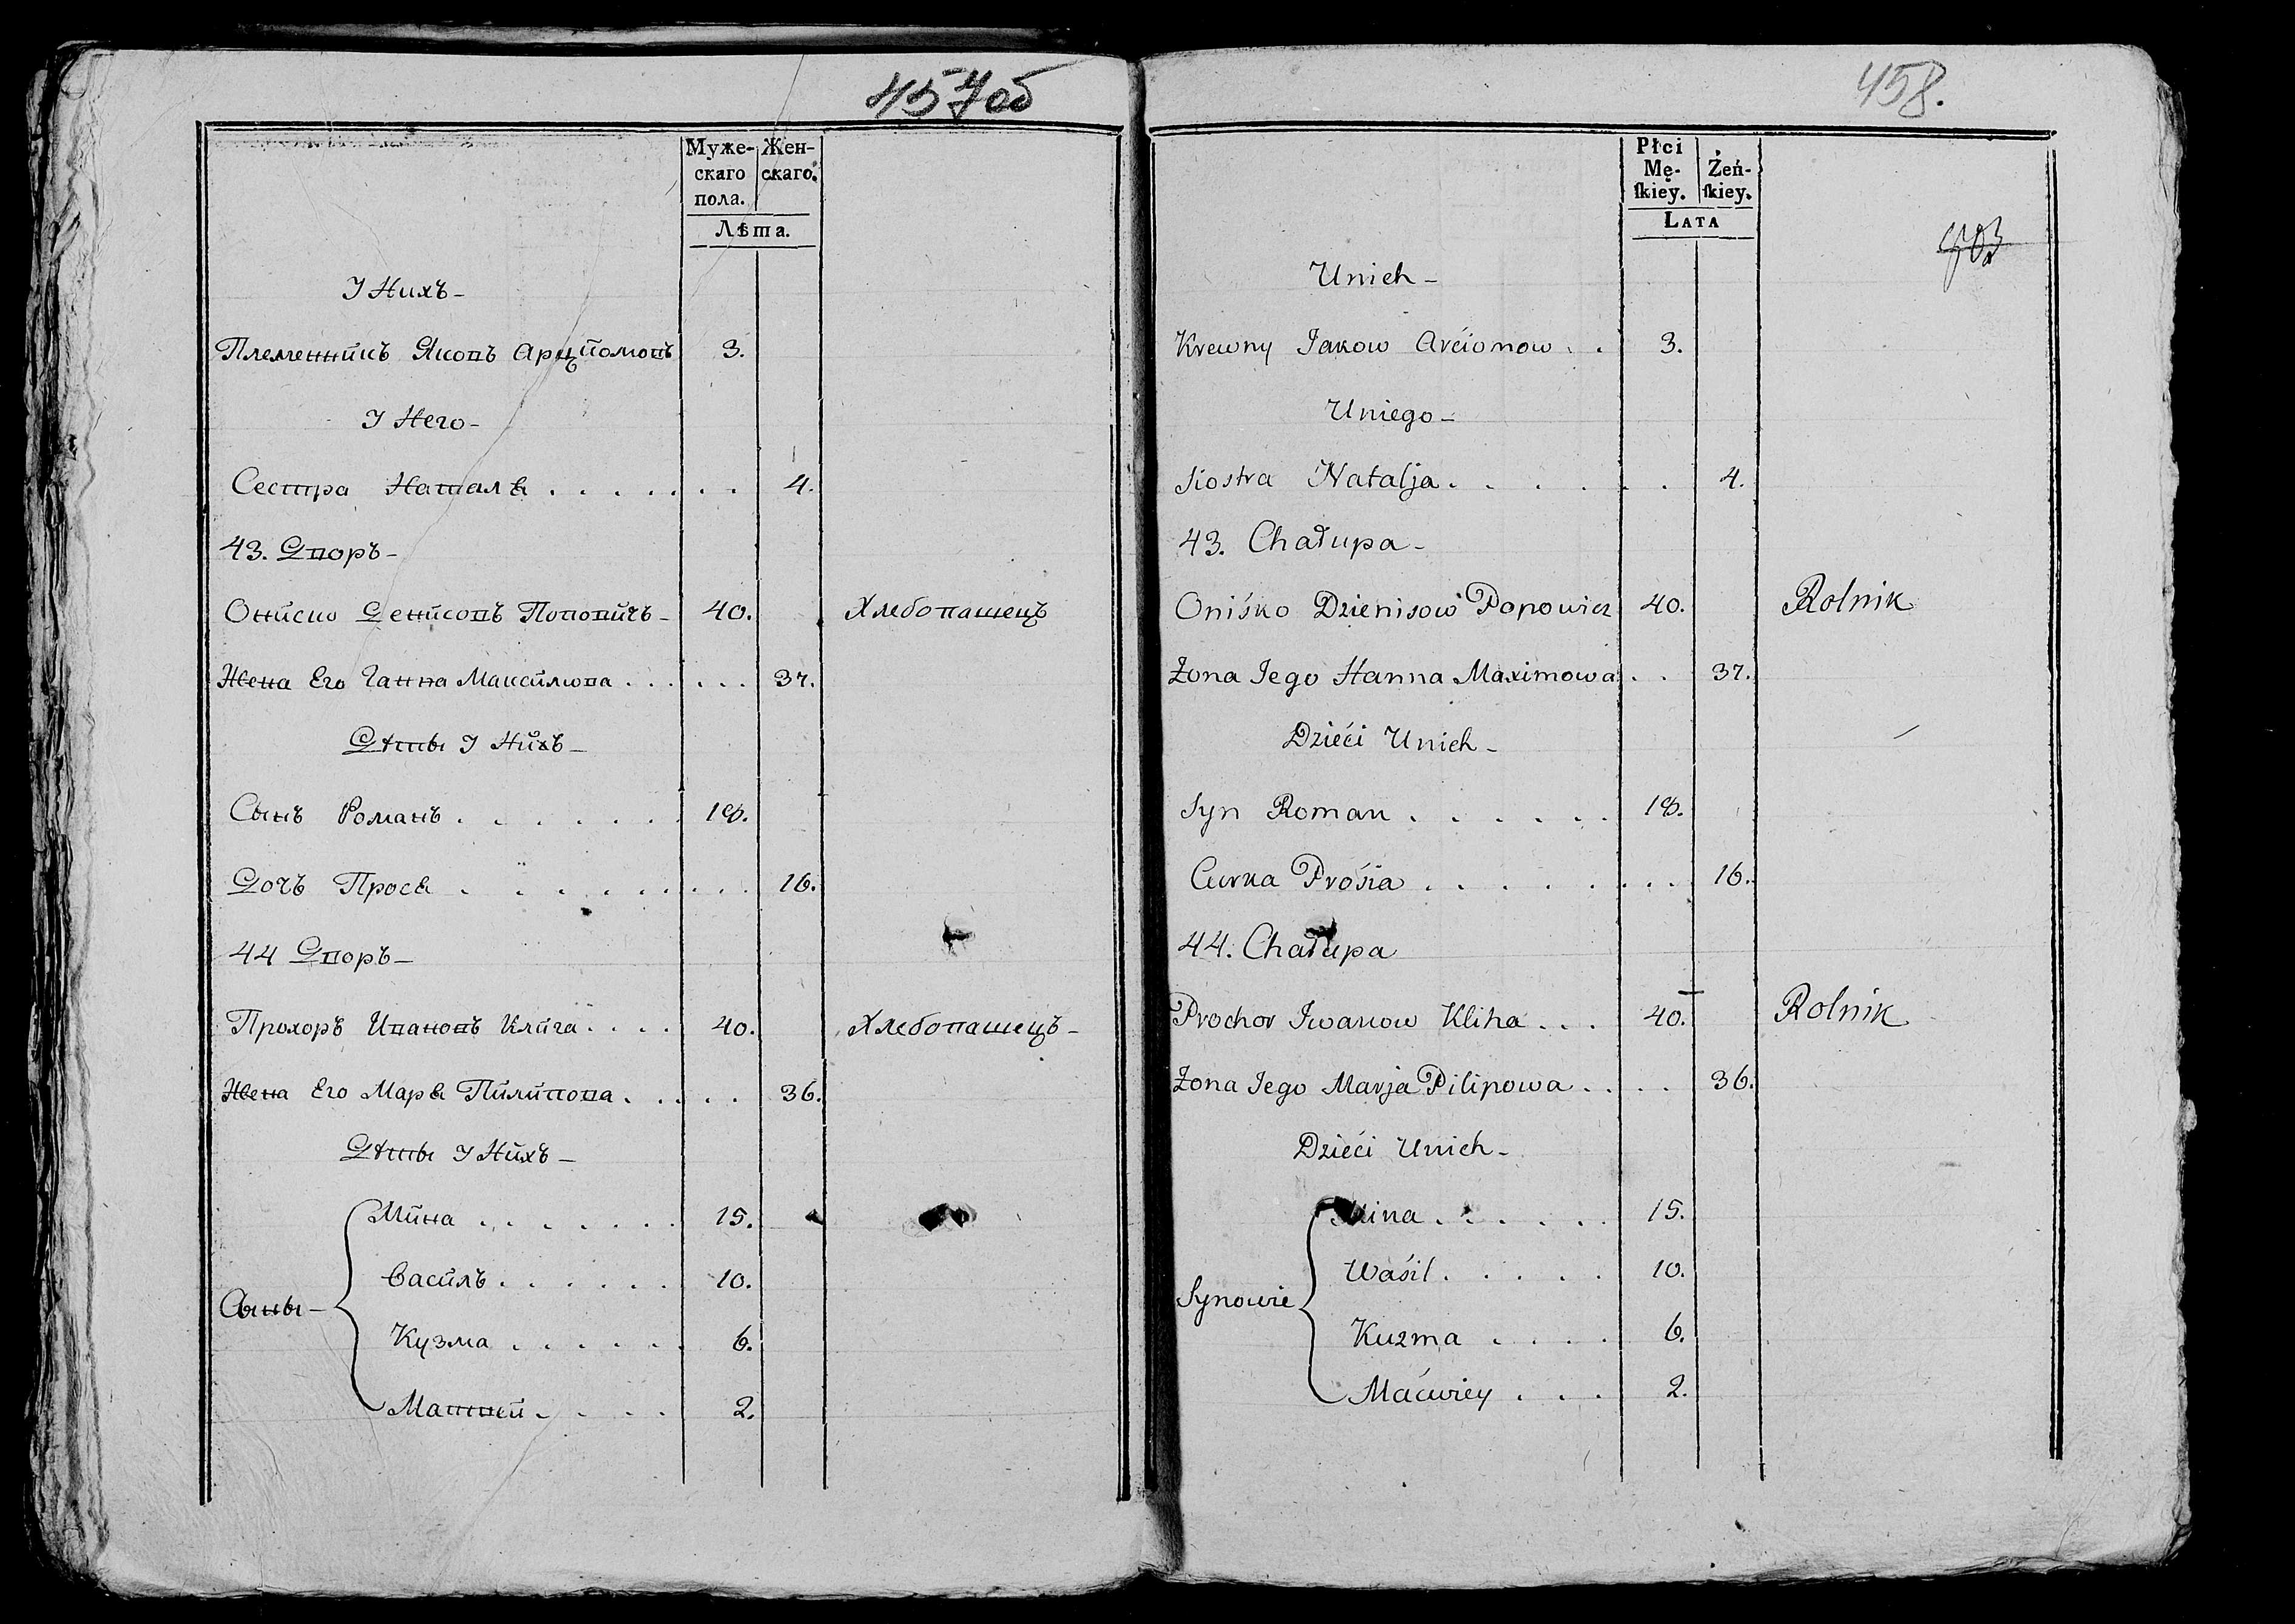 457об
Муже- Жен-
скаго скаго.
пола.
Лѣта.
У Нихъ-
Племенникъ Яковъ Арціомовъ 3.
У Него-
Сестра Наталя . . . . . . . 4.
43. Дворъ-
Ониско Денисовъ Поповичъ- 40. Хлебопашецъ
Жена Его Ганна Максимова . . . . . . 37.
Дѣты У Нихъ-
Сынъ Романъ . . . . . . 18.
Дочъ Прося . . . . . . . . . 16.
44 Дворъ-
Прохоръ Ивановъ Клига . . . . 40. Хлебопашецъ-
Жена Его Маря Пилипова . . . . . 36.
Дѣты У Нихъ-
Мина . . . . . . . 15.
Василь . . . . . . 10.
Сыны-
Кузма . . . . . . 6.
Матвей . . . . 2.
458.
Płci
Mę- Żeń-
skiey. skiey.
Lata
703
Unich-
Krewny Jakow Arćionow . . 3.
Uniego-
Siostra Natalja . . . . . . . 4.
43. Chałupa-
Oniśko Dzienisow Popowicz 40. Rolnik
Żona Jego Hanna Maximowa . . 37.
Dzieći Unich-
Syn Roman . . . . . . 18.
Curka Prośia . . . . . . . . . 16.
44. Chałupa
Prochor Iwanow Kliha . . . 40. Rolnik
Żona Jego Marja Pilipowa . . . . 36.
Dzieći Unich-
Mina . . . . . . 15.
Waśil . . . . . 10.
Synowie
Kuzma . . . . 6.
Maćwiey . . . 2.